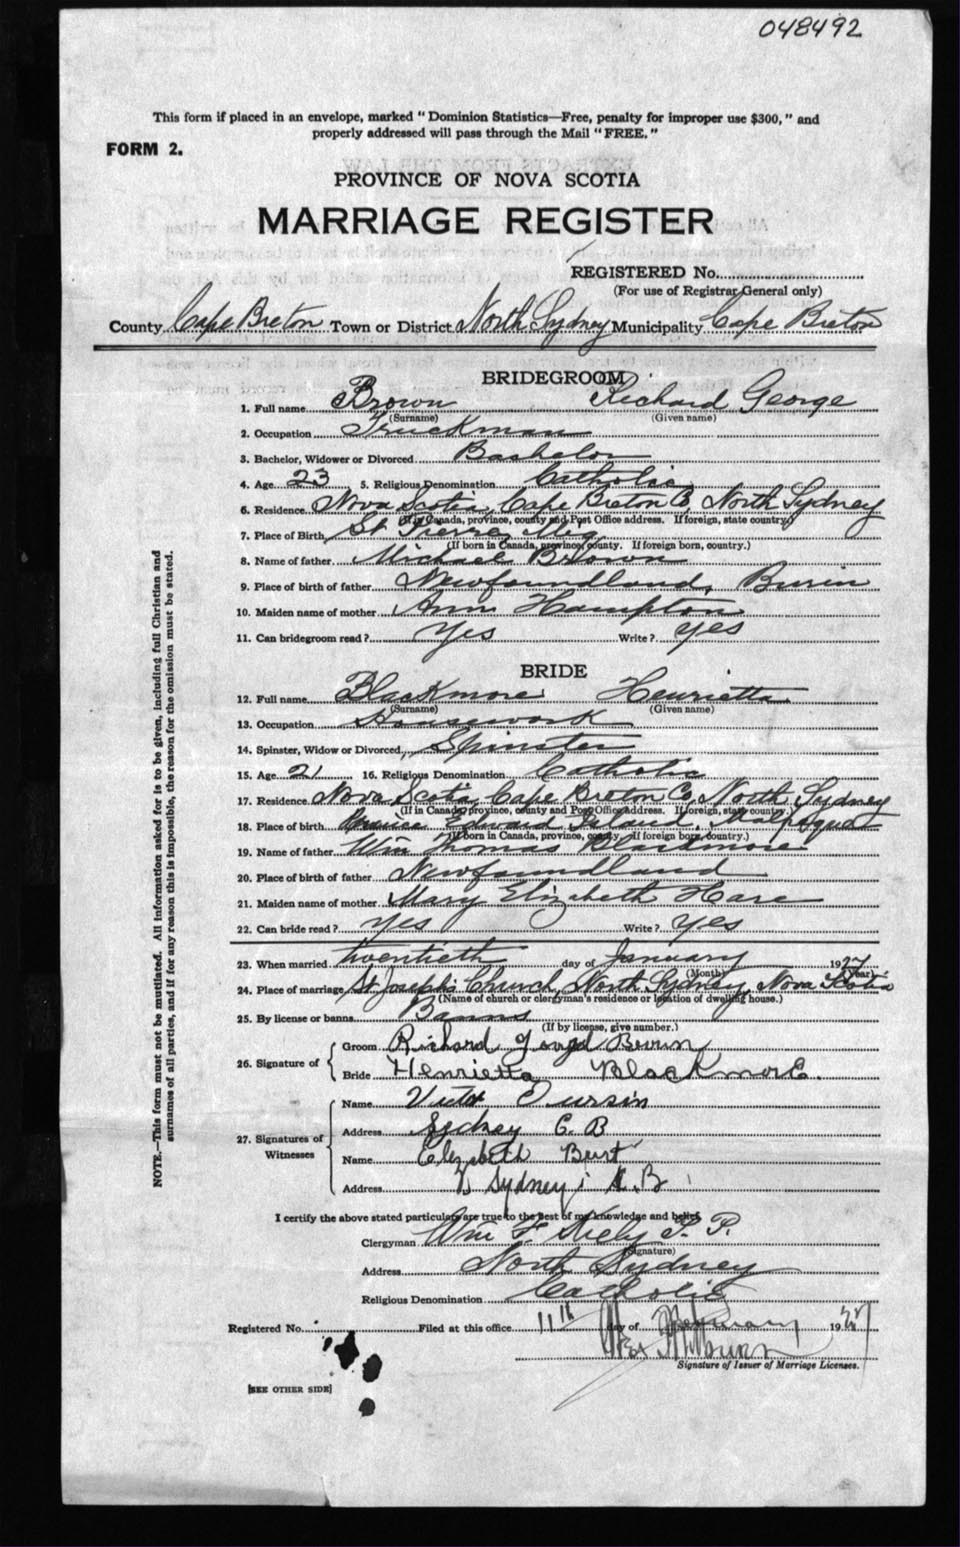 048492
This form if placed in an envelope, marked "Dominion Statistics—Free, penalty for improper use $300," and
properly addressed will pass through the Mail "FREE."
FORM 2.
PROVINCE OF NOVA SCOTIA
MARRIAGE REGISTER
REGISTERED No.
(For use of Registrar General only)
County Cape Breton Town or District North Sydney Municipality Cape Breton
BRIDEGROOM
1. Full name Brown Richard George
(Surname) (Given name)
2. Occupation Truckman
3. Bachelor, Widower or Divorced Bachelor
4. Age 23 5. Religious Denomination Catholic
6. Residence Nova Scotia, Cape Breton Co, North Sydney
(If in Canada, province, county and Post Office address. If foreign, state country.)
7. Place of Birth St
(If born in Canada, province, county. If foreign born, country.)
8. Name of father Michael Brown
9. Place of birth of father Newfoundland, Burin
10. Maiden name of mother Ann Hampton
11. Can bridegroom read? Yes Write? Yes
BRIDE
12. Full name Blackmore Henrietta
(Surname) (Given name)
13. Occupation Housework
14. Spinster, Widow or Divorced Spinster
15. Age 21 16. Religious Denomination Catholic
17. Residence Nova Scotia, Cape Breton Co, North Sydney
(If in Canada, province, county and Post Office Address. If foreign, state country.)
18. Place of birth Edward
(If born in Canada, province, county. If foreign born, country.)
19. Name of father Wm Thomas Blackmore
20. Place of birth of father Newfoundland
21. Maiden name of mother Mary Elizabeth Hare
22. Can bride read? Yes Write? Yes
23. When married twentieth day of January 1927
(Month)
24. Place of marriage St Joseph's Church, North Sydney, Nova Scotia
(Name of church or clergyman's residence or location of dwelling house.)
25. By license or banns Banns
(If by license, give number.)
26. Signature of
Groom Richard
Bride Henrietta Blackmore.
27. Signatures of Witnesses
Name
Address Sydney C. B
Name Elizabeth
Address N Sydney, C.B
I certify the above stated particulars are true to the best of my knowledge and belief.
Clergyman Wm F. Kiely P. P.
(Signature)
Address North Sydney
Religious Denomination Catholic
Registered No. Filed at this office 11th day of February 1927
Signature of Issuer of Marriage Licenses.
[SEE OTHER SIDE]
NOTE.—This form must not be mutilated. All information asked for is to be given, including full Christian and
surnames of all parties, and if for any reason this is impossible, the reason for the omission must be stated.